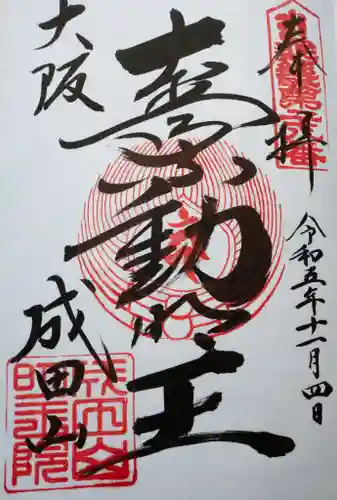 奉拝
令和五年十一月四日
不動明王
大阪
成田山
成田山
明王院